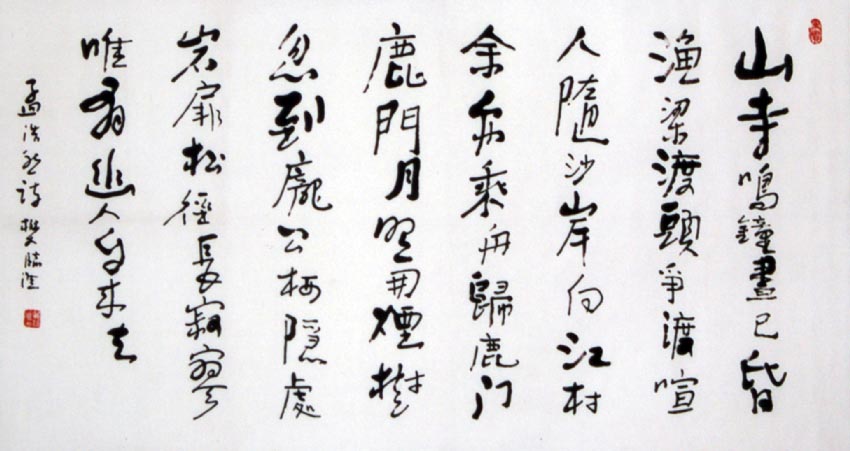 山寺鳴鐘晝已昏
漁梁渡頭爭渡喧
人隨沙岸向江村
余亦乘舟歸鹿门
鹿門月照開煙樹
忽到龐公栖隱處
岩扉松徑長寂寥
唯有幽人自来去
孟浩然詩